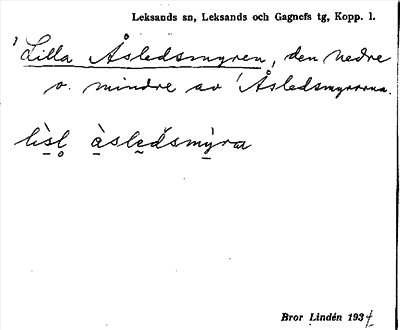 Leksands sn, Leksands och Gagnefs tg, Kopp. l.
¹ Lilla Åsledsmyren, den nedre
o. mindre av ¹Åsledsmyrarna.
lìsl̥ àslędsmỳra
Bror Lindén 1934